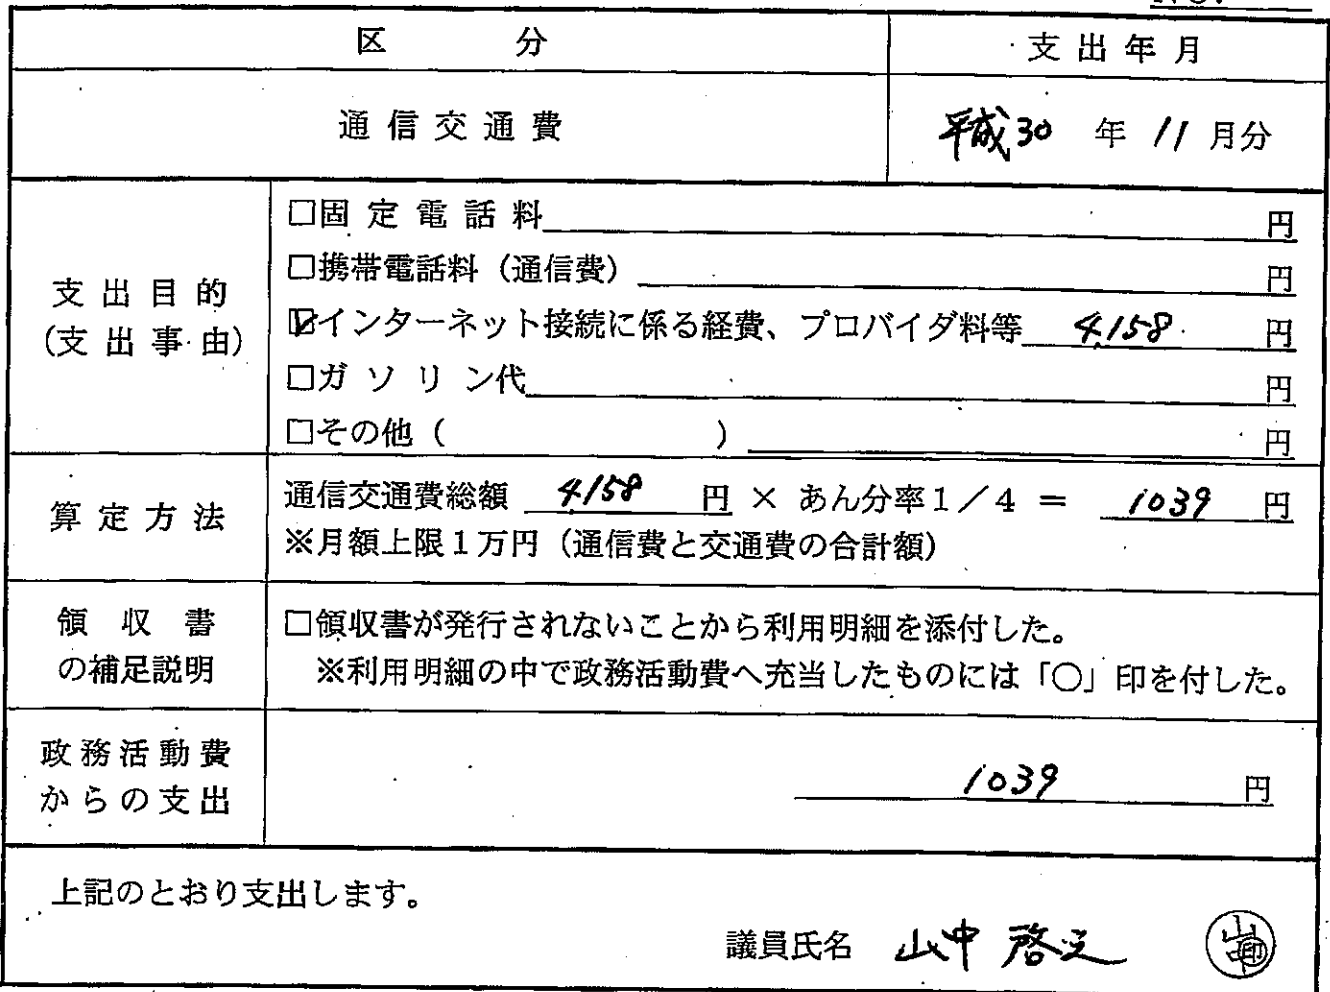 No.
区 分 支出年月
通信交通費 平成30 年 11 月分
支出目的
(支出事由)
□固定電話料 円
□携帯電話料（通信費） 円
☑インターネット接続に係る経費、プロバイダ料等 4,158 円
□ガソリン代 円
□その他（ ） 円
算定方法
通信交通費総額 4,158 円 × あん分率1／4 ＝ 1039 円
※月額上限1万円（通信費と交通費の合計額）
領収書
の補足説明
□領収書が発行されないことから利用明細を添付した。
※利用明細の中で政務活動費へ充当したものには「○」印を付した。
政務活動費
からの支出
1039 円
上記のとおり支出します。
議員氏名 山中 啓之 山中 印